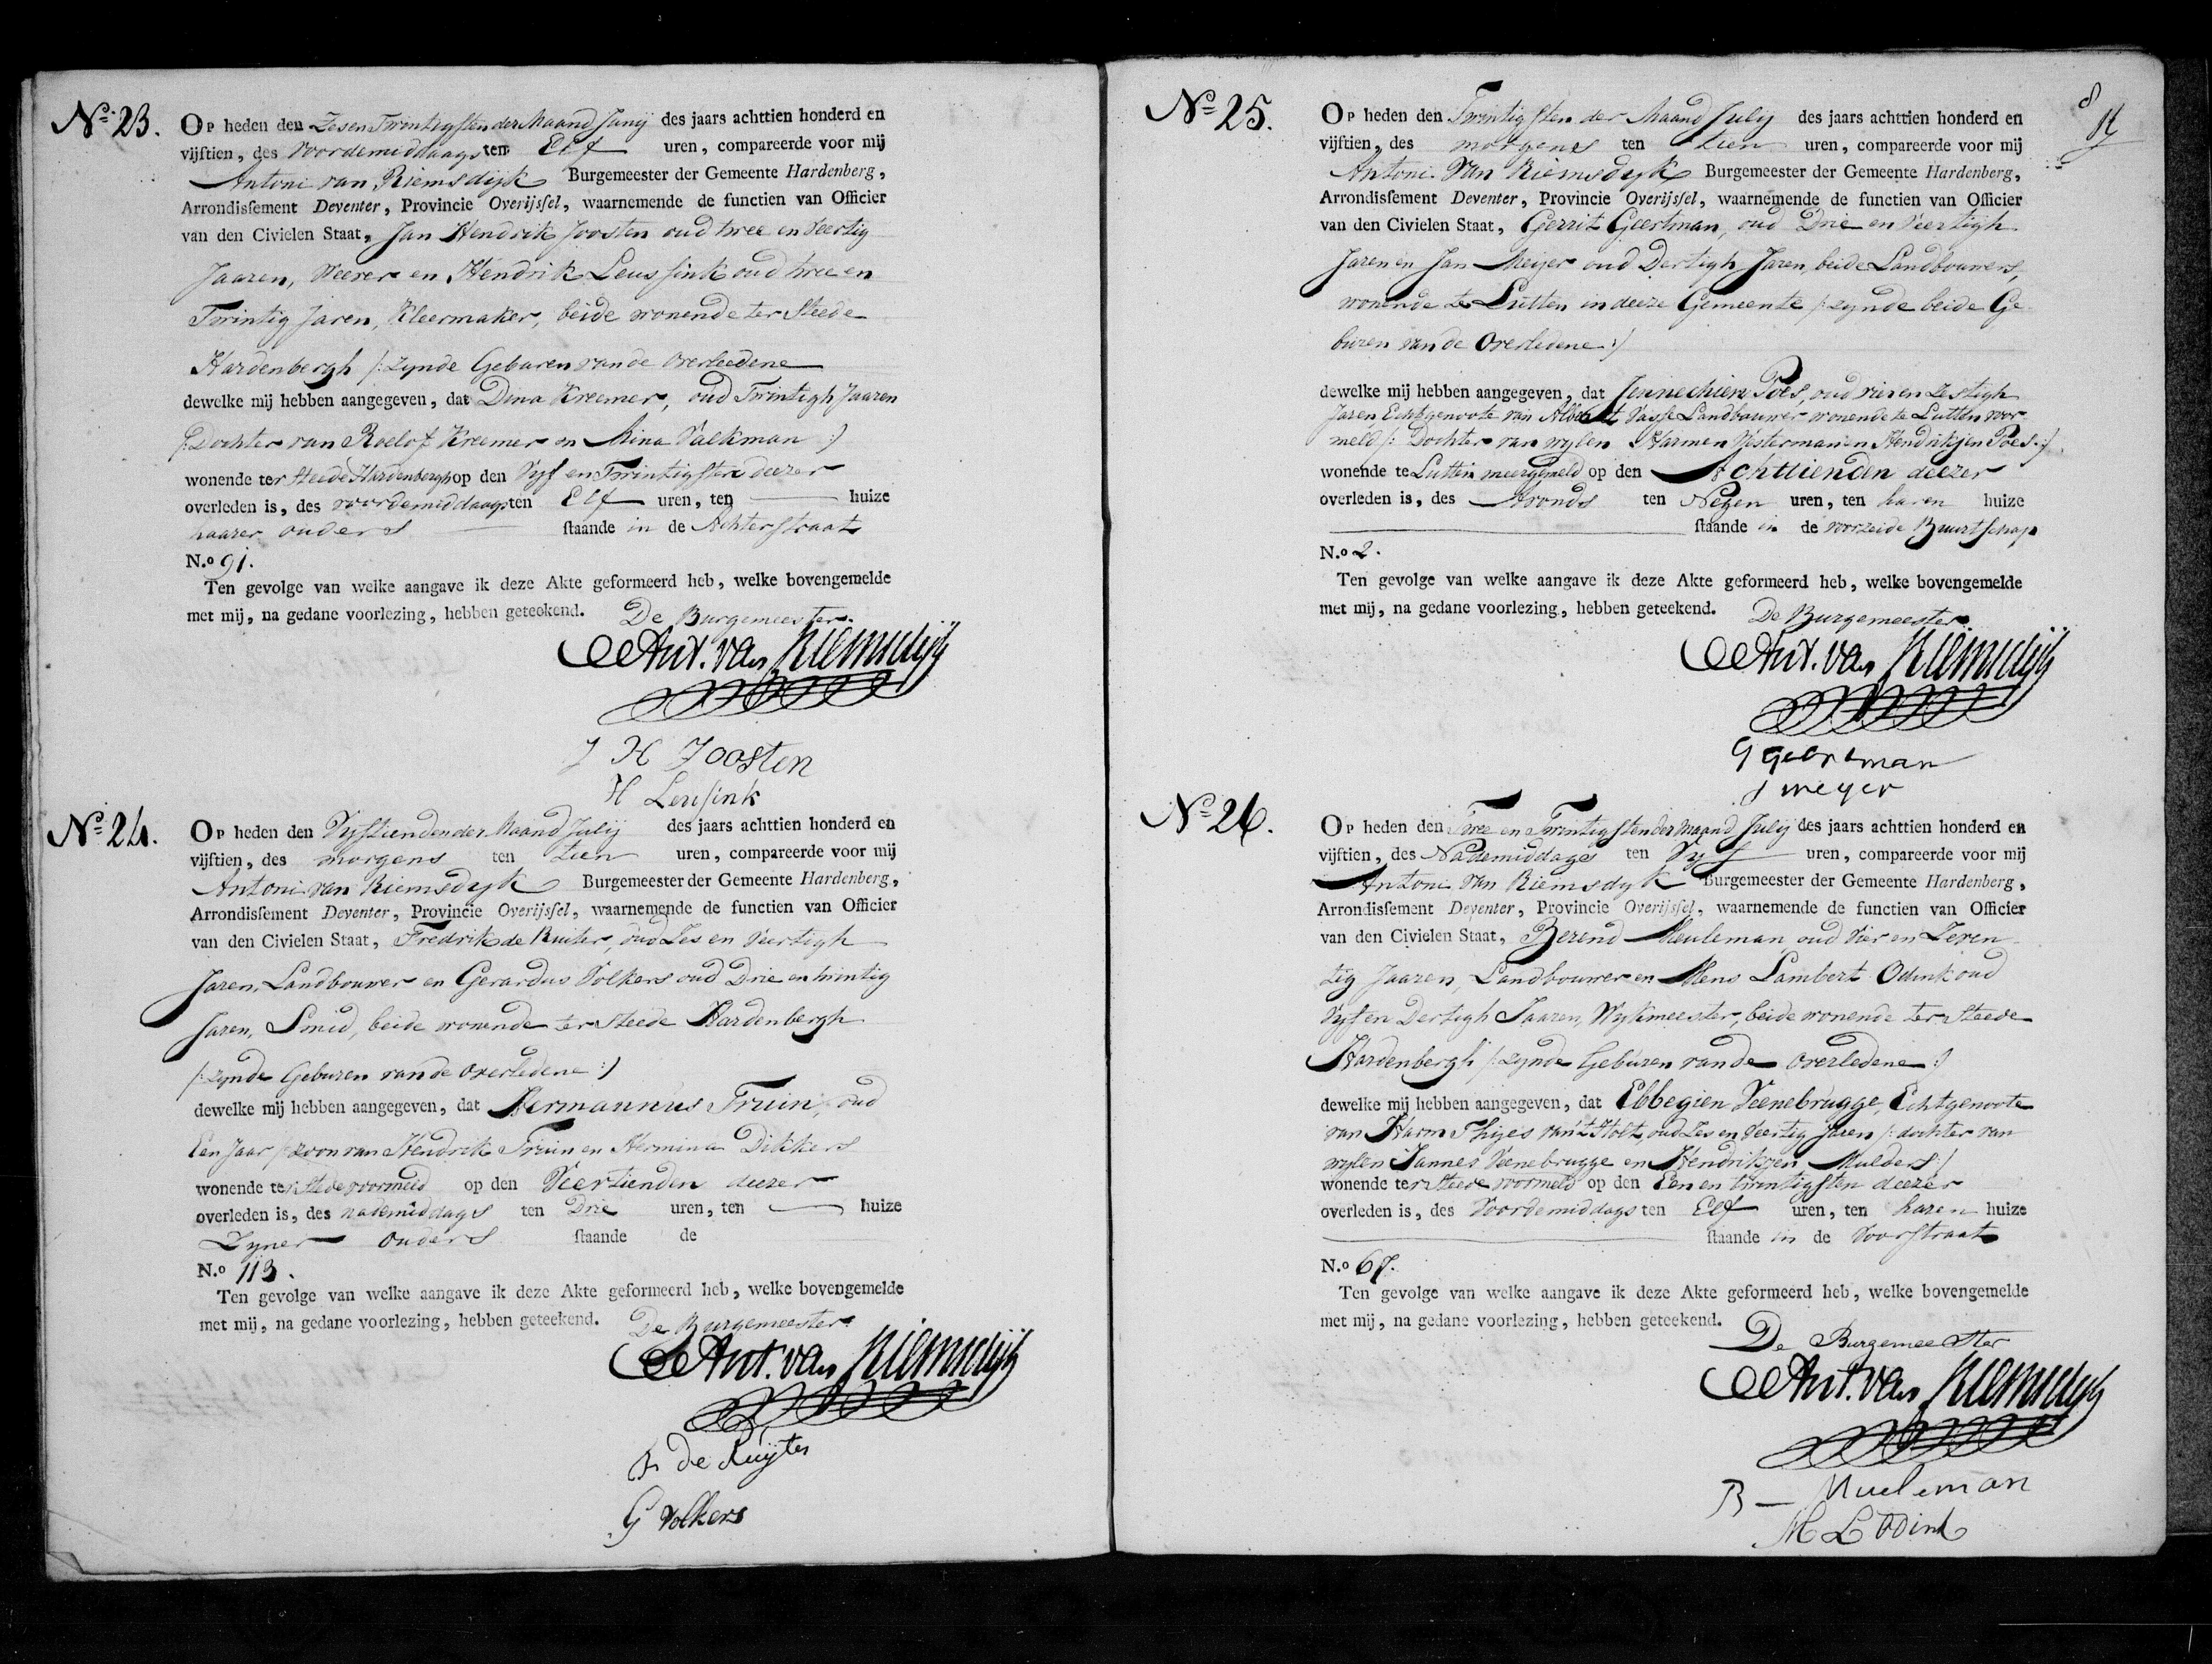 No. 23.
Op heden den Zesen Twintigsten der Maand Junij des jaars achttien honderd en
vijftien, des voordemiddaags ten Elf uren, compareerde voor mij
Antoni van Riemsdijk Burgemeester der Gemeente Hardenberg,
Arrondissement Deventer, Provincie Overijssel, waarnemende de functien van Officier
van den Civielen Staat, Jan Hendrik Joosten oud twee en Veertig
Jaaren, Wever en Hendrik Leussink oud twee en
Twintig Jaren, Kleermaker, beide wonende ter Steede
Hardenbergh /: zynde Geburen vande overleedene
dewelke mij hebben aangegeven, dat Dina Kreemer, oud Twintigh Jaaren
/: Dochter van Roelof Kreemer en Mina Valkman :/
wonende ter Steede Hardenbergh op den Vyf en Twintigsten deezer
overleden is, des voordemiddaags ten Elf uren, ten huize
haarer ouders staande in de Achterstraat
N.o 91.
Ten gevolge van welke aangave ik deze Akte geformeerd heb, welke bovengemelde
met mij, na gedane voorlezing, hebben geteekend. De Burgemeester
Ant. van Riemsdijk
J H Joosten
H Leusink
No. 24.
Op heden den Vyftienden der Maand Julij des jaars achttien honderd en
vijftien, des morgens ten tien uren, compareerde voor mij
Antoni van Riemsdyk Burgemeester der Gemeente Hardenberg,
Arrondissement Deventer, Provincie Overijssel, waarnemende de functien van Officier
van den Civielen Staat, Fredrik de Ruiter, oud Zes en Veertigh
Jaren, Landbouwer en Gerardus Volkers oud Drie en twintig
Jaren, Smid, beide wonende ter Steede Hardenbergh
/: zynde Geburen van de overledene :/
dewelke mij hebben aangegeven, dat Hermannus Truin, oud
Een Jaar /: zoon van Hendrik Truin en Hermina Dikkers
wonende ter Stede voormeld op den Veertienden deezer
overleden is, des nademiddags ten Drie uren, ten huize
Zyner ouders staande de
N.o 113.
Ten gevolge van welke aangave ik deze Akte geformeerd heb, welke bovengemelde
met mij, na gedane voorlezing, hebben geteekend. De Burgemeester
Ant. van Riemsdijk
F de Ruijter
G Volkers
8
No. 25.
Op heden den Twintigsten der Maand July des jaars achttien honderd en
vijftien, des morgens ten tien uren, compareerde voor mij
Antoni Van Riemsdyk Burgemeester der Gemeente Hardenberg,
Arrondissement Deventer, Provincie Overijssel, waarnemende de functien van Officier
van den Civielen Staat, Gerrit Geertman, oud Drie en Veertigh
Jaren en Jan Meijer oud Dertigh Jaren, beide Landbouwers,
wonende te Lutten in deeze Gemeente /: zynde beide Ge
buren van de Overledene :/
dewelke mij hebben aangegeven, dat Jennechien Poes, oud vier en Zestigh
Jaren, Echtgenoote van Albert Vasse Landbouwer wonende te Lutten voor
meld /: Dochter van wylen Harmen Westerman en Hendrikjen Poes :/
wonende te Lutten meergemeld op den Achttienden deezer
overleden is, des Avonds ten Negen uren, ten haren huize
staande in de voorzeide Buurtschap
N.o 2.
Ten gevolge van welke aangave ik deze Akte geformeerd heb, welke bovengemelde
met mij, na gedane voorlezing, hebben geteekend. De Burgemeester
Ant. van Riemsdijk
G geertman
J meyer
No. 26.
Op heden den Twee en Twintigsten der Maand Julij des jaars achttien honderd en
vijftien, des Nademiddags ten Vyf uren, compareerde voor mij
Antoni Van Riemsdyk Burgemeester der Gemeente Hardenberg,
Arrondissement Deventer, Provincie Overijssel, waarnemende de functien van Officier
van den Civielen Staat, Berend Meuleman oud Vier en Zeven
tig Jaaren, Landbouwer en Mens Lambert Odink oud
Vyf en Dertigh Jaaren, Wykmeester, beide wonende ter Steede
Hardenbergh /: zynde Geburen van de overledene :/
dewelke mij hebben aangegeven, dat Ebbegien Veenebrugge, Echtgenoote
van Harm Thijes van't Holt, oud Zes en Veertig Jaren /: dochter van
wylen Jannes Veenebrugge en Hendrikjen Mulders :/
wonende ter Steede voormeld op den Een en twintigsten deezer
overleden is, des Voordemiddags ten Elf uren, ten haren huize
staande in de Voorstraat
N.o 67.
Ten gevolge van welke aangave ik deze Akte geformeerd heb, welke bovengemelde
met mij, na gedane voorlezing, hebben geteekend.
De Burgemeester
Ant. van Riemsdijk
B - Mueleman
M L Odink